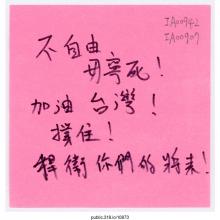 IA00942
IA00907
不自由
毋寧死!
加油 台灣!
撐住!
捍衛你們的將來!
public.318.io/10873